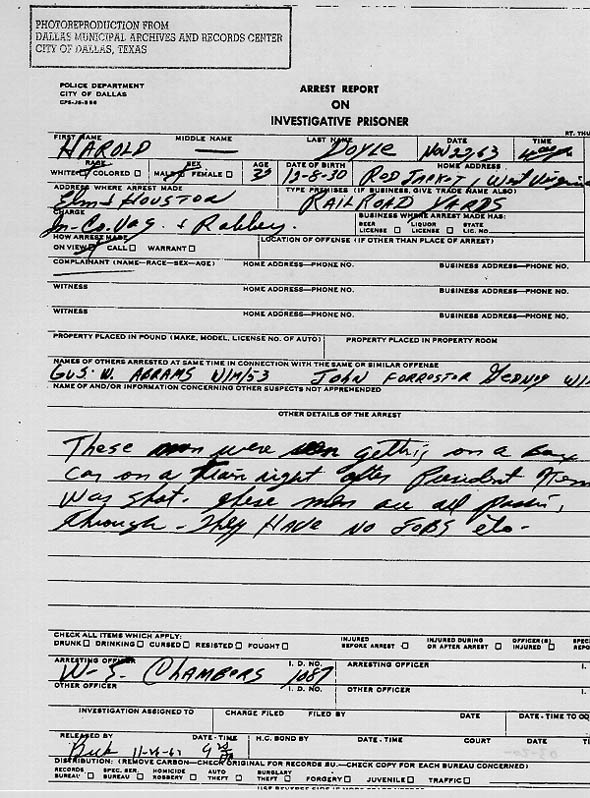 PHOTOREPRODUCTION FROM
DALLAS MUNICIPAL ARCHIVES AND RECORDS CENTER
CITY OF DALLAS, TEXAS
POLICE DEPARTMENT
CITY OF DALLAS
ARREST REPORT
ON
INVESTIGATIVE PRISONER
RT. THU
FIRST NAME MIDDLE NAME LAST NAME DATE TIME
HAROLD — Doyle Nov 22, 63
RACE SEX AGE DATE OF BIRTH HOME ADDRESS
WHITE COLORED MALE FEMALE 32 12-8-30 Red Jacket - West Virginia
ADDRESS WHERE ARREST MADE TYPE PREMISES (IF BUSINESS, GIVE TRADE NAME ALSO)
Elm & HOUSTON RAILROAD YARDS
CHARGE BUSINESS WHERE ARREST MADE HAS:
In-Co. Vag. & Robbery. BEER LICENSE LIQUOR LICENSE STATE LIC. NO.
HOW ARREST MADE LOCATION OF OFFENSE (IF OTHER THAN PLACE OF ARREST)
ON VIEW CALL WARRANT
COMPLAINANT (NAME—RACE—SEX—AGE) HOME ADDRESS—PHONE NO. BUSINESS ADDRESS—PHONE NO.
WITNESS HOME ADDRESS—PHONE NO. BUSINESS ADDRESS—PHONE NO.
WITNESS HOME ADDRESS—PHONE NO. BUSINESS ADDRESS—PHONE NO.
PROPERTY PLACED IN POUND (MAKE, MODEL, LICENSE NO. OF AUTO) PROPERTY PLACED IN PROPERTY ROOM
NAMES OF OTHERS ARRESTED AT SAME TIME IN CONNECTION WITH THE SAME OR SIMILAR OFFENSE
GUS. W. ABRAMS W/M/53 JOHN FORROSTOR Gedney W/
NAME OF AND/OR INFORMATION CONCERNING OTHER SUSPECTS NOT APPREHENDED
OTHER DETAILS OF THE ARREST
These men were seen getting on a Box
Car on a train right after President Ken
was shot. These men are all passin,
through - They HAVE NO JOBS etc-
CHECK ALL ITEMS WHICH APPLY:
DRUNK DRINKING CURSED RESISTED FOUGHT INJURED BEFORE ARREST INJURED DURING OR AFTER ARREST OFFICER(S) INJURED SPEC REPO
ARRESTING OFFICER I. D. NO. ARRESTING OFFICER I.
W. E. CHAMBERS 1087
OTHER OFFICER I. D. NO. OTHER OFFICER I.
INVESTIGATION ASSIGNED TO CHARGE FILED FILED BY DATE DATE - TIME TO CO
RELEASED BY DATE - TIME H.C. BOND BY DATE - TIME COURT DATE TI
Beck 11-26-63
DISTRIBUTION: (REMOVE CARBON—CHECK ORIGINAL FOR RECORDS BU.—CHECK COPY FOR EACH BUREAU CONCERNED)
RECORDS BUREAU SPEC. SER. BUREAU HOMICIDE ROBBERY AUTO THEFT BURGLARY THEFT FORGERY JUVENILE TRAFFIC